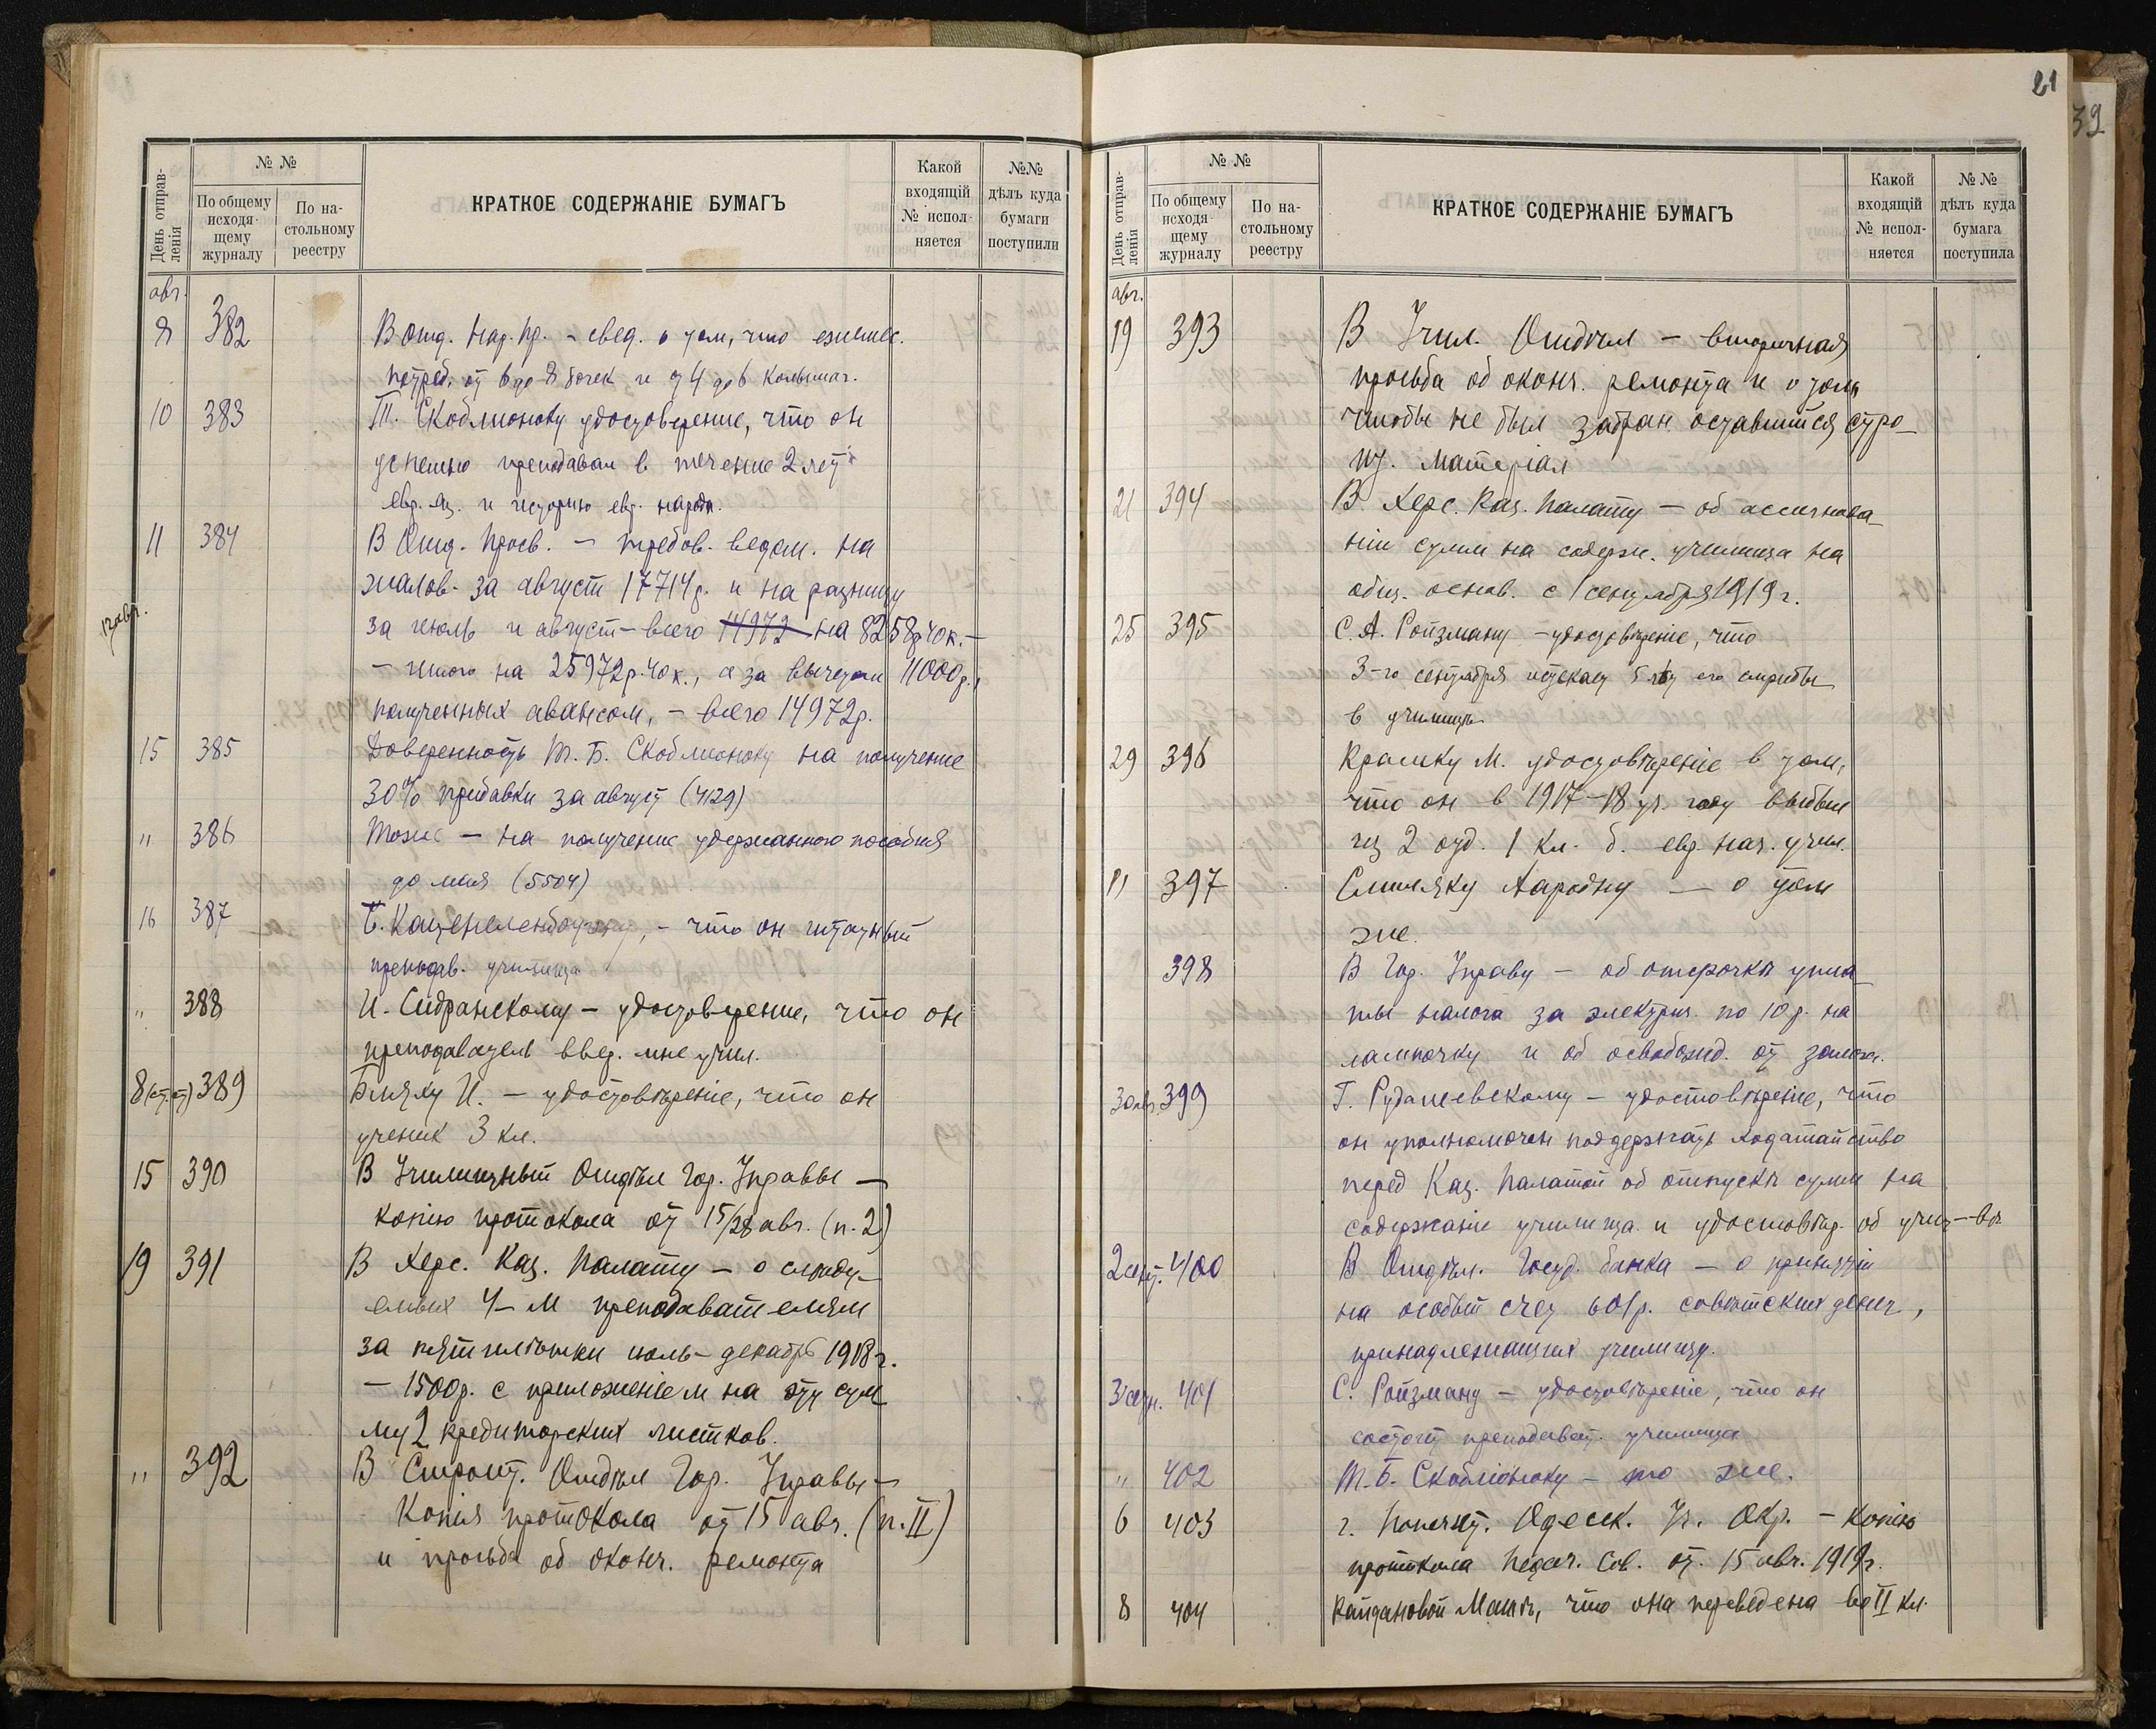 21
39
День отправ-
ленія
№ №
По общему
исходя-
щему
журналу
По на-
стольному
реестру
КРАТКОЕ СОДЕРЖАНІЕ БУМАГЪ
Какой
входящій
№ испол-
няется
№№
дѣлъ куда
бумаги
поступили
авг.
8 382 В Отд. Нар. Пр. - свед. о том, что ежемес.
потреб. от 6 до 8 бочек и от 4 до 6
10 383 Скоблионоку удостоверение, что он
успешно преподавал в течение 2 лет
евр. яз. и историю евр. народа.
11 384 В Отд. Просв. - требов. ведом. на
жалов. за август 17714 р. и на разницу
12 авг.
за июль и август - всего 14972 на 8258 р 40 к. -
- итого на 25972 р. 40 к., а за вычетом 11000 р.,
полученных авансом, - всего 14972 р.
15 385 Доверенность М. Б. Скоблионоку на получение
30% прибавки за август (4129)
" 386 Тоже - на получение удержанного пособия
до мая (5504)
16 387 Б. Каценеленбогену, - что он штатный
преподав. училища
" 388 И. Сидранскому - удостоверение, что он
преподаватель ввер. мне учил.
8 (ст. ст) 389 И. - удостовѣреніе, что он
ученик 3 кл.
15 390 В Училищный Отдѣл Гор. Управы -
копію протокола от 15/28 авг. (п. 2)
19 391 В Херс. Каз. Палату - о слѣду-
емых 4-м преподавателям
за пятилѣтки июль - декабрь 1918 г.
- 1500 р. с приложеніем на эту сум
му 2 кредиторских листков.
" 392 В Строит. Отдѣл Гор. Управы -
Копия протокола от 15 авг. (п. II)
и просьба об оконч. ремонта
День отправ-
ленія
№ №
По общему
исходя-
щему
журналу
По на-
стольному
реестру
КРАТКОЕ СОДЕРЖАНІЕ БУМАГЪ
Какой
входящій
№ испол-
няется
№ №
дѣлъ куда
бумага
поступила
авг.
19 393 В Учил. Отдѣл - вторичная
просьба об оконч. ремонта и о том
чтобы не был забран оставшійся стро-
ит. матеріал
21 394 В Херс. Каз. Палату - об ассигнова-
ніи сумм на содерж. училища на
общ. основ. с 1 сентября 1919 г.
25 395 С. А. Ройзману - удостовѣреніе, что
3-го сентября истекает 5 лет его службы
в училищѣ
29 396 Крамеку М. удостовѣреніе в том,
что он в 1917-18 уч. году выбыл
из 2 отд. 1 кл. б. евр. нач. учил.
" 397 Аарону - о том
же.
398 В Гор. Управу - об отсрочкѣ упла
ты налога за электрич. по 10 р. на
лампочку и об освобожд. от залога.
30 авг. 399 Г. Рудашевскому - удостовѣреніе, что
он уполномочен поддержать ходатайство
перед Каз. Палатой об отпускѣ сумм на
содержаніе училища и удостовѣр. об учил-вѣ
2 сент. 400 В Отдѣл. Госуд. банка - о принятіи
на особый счет 601 р. совѣтских денег,
принадлежащих училищу.
3 сент. 401 С. Ройзману - удостовѣреніе, что он
состоит преподават. училища
" 402 М. Б. Скобліоноку - то же.
6 403 г. Попечит. Одесск. Уч. Окр. - копію
протокола Педаг. Сов. от 15 авг. 1919 г.
8 404 Кайдановой Машѣ, что она переведена во II кл.